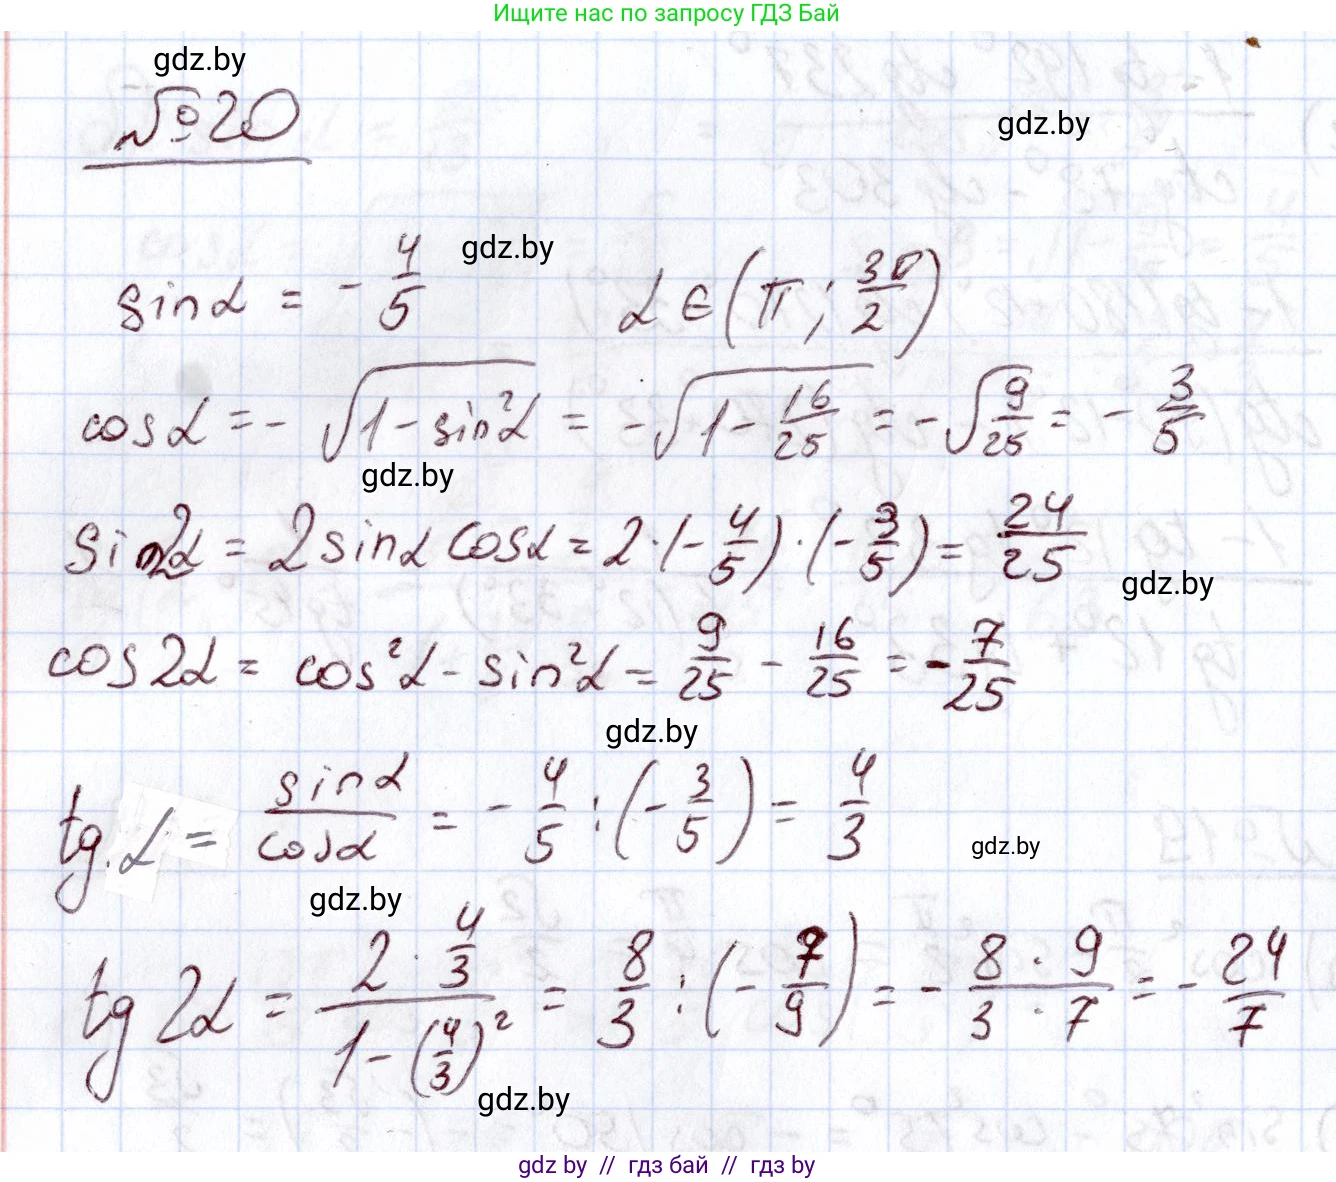 Ищите нас по запросу ГДЗ Бай
gdz.by
№20
gdz.by
gdz.by
sinα = - 4/5    α ∈ (π; 3π/2)
cosα = - √(1 - sin²α) = - √(1 - 16/25) = - √(9/25) = - 3/5
gdz.by
sin2α = 2sinα cosα = 2 · (- 4/5) · (- 3/5) = 24/25
gdz.by
cos2α = cos²α - sin²α = 9/25 - 16/25 = - 7/25
gdz.by
tg α = sinα/cosα = - 4/5 : (- 3/5) = 4/3
gdz.by
gdz.by
tg 2α = (2 · 4/3)/(1 - (4/3)²) = 8/3 : (- 7/9) = - (8 · 9)/(3 · 7) = - 24/7
gdz.by
gdz by // гдз бай // гдз by